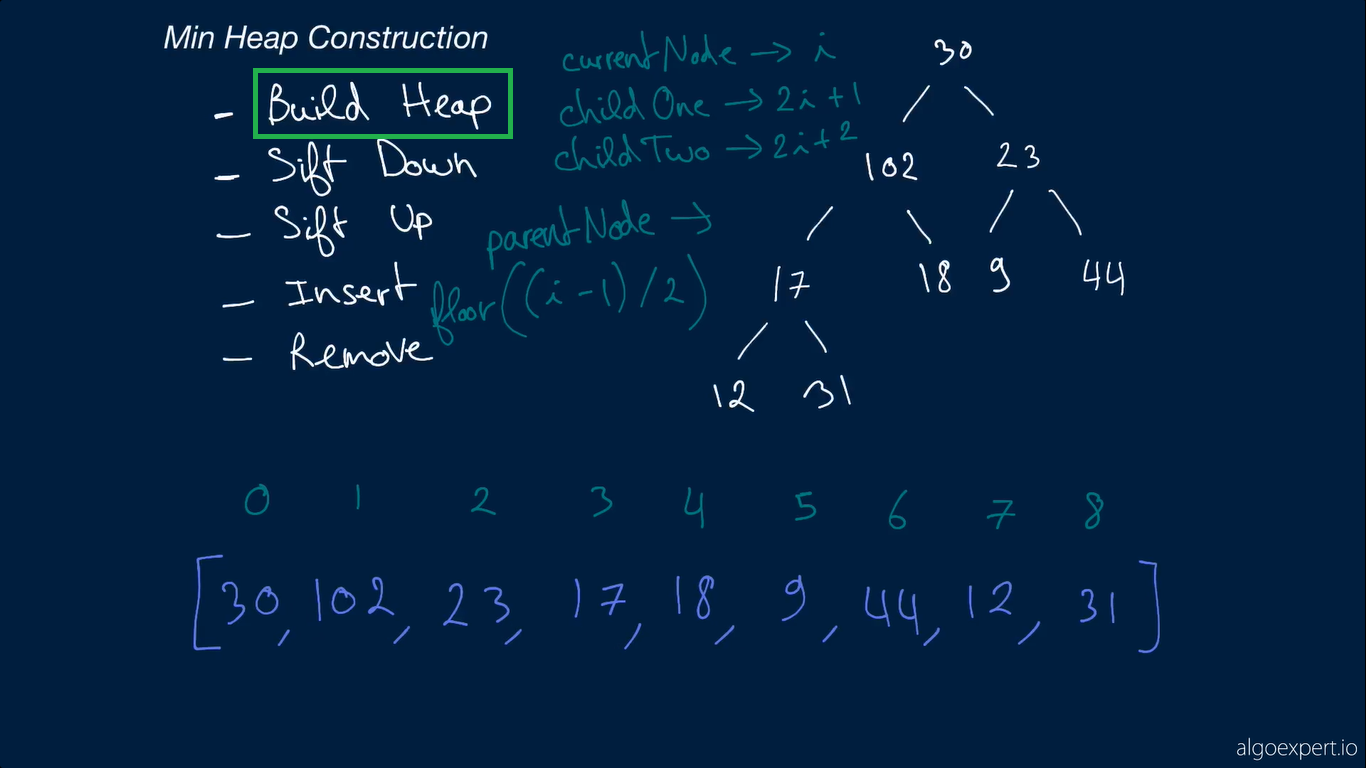 Min Heap Construction
- Build Heap
- Sift Down
- Sift Up
- Insert
- Remove
currentNode → i
childOne → 2i+1
childTwo → 2i+2
parentNode →
floor((i-1)/2)
30
102 23
17 18 9 44
12 31
0 1 2 3 4 5 6 7 8
[30, 102, 23, 17, 18, 9, 44, 12, 31]
algoexpert.io